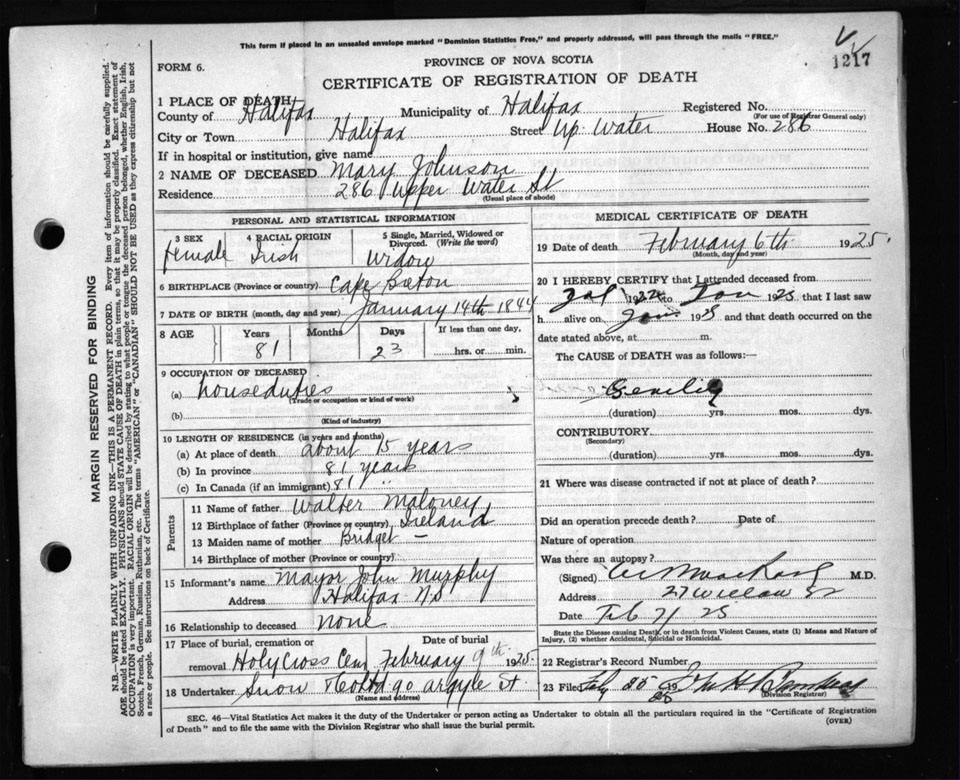 This form if placed in an unsealed envelope marked "Dominion Statistics Free," and properly addressed, will pass through the mails "FREE."
1217
FORM 6.
PROVINCE OF NOVA SCOTIA
CERTIFICATE OF REGISTRATION OF DEATH
1 PLACE OF DEATH
County of Halifax Municipality of Halifax Registered No.
(For use of Registrar General only)
City or Town Halifax Street Up. Water House No. 286
If in hospital or institution, give name
2 NAME OF DECEASED Mary Johnson
Residence 286 Upper Water St
(Usual place of abode)
PERSONAL AND STATISTICAL INFORMATION
3 SEX 4 RACIAL ORIGIN 5 Single, Married, Widowed or Divorced. (Write the word)
female Irish Widow
6 BIRTHPLACE (Province or country) Cape Breton
7 DATE OF BIRTH (month, day and year) January 14th 1844
8 AGE Years Months Days If less than one day,
81 23 hrs. or min.
9 OCCUPATION OF DECEASED
(a) house duties
(Trade or occupation or kind of work)
(b)
(Kind of industry)
10 LENGTH OF RESIDENCE (in years and months)
(a) At place of death about 15 years
(b) In province 81 years
(c) In Canada (if an immigrant) 81 "
Parents
11 Name of father Walter Maloney
12 Birthplace of father (Province or country) Ireland
13 Maiden name of mother Bridget —
14 Birthplace of mother (Province or country)
15 Informant's name Mayor John Murphy
Address Halifax NS
16 Relationship to deceased none
17 Place of burial, cremation or removal Date of burial
Holy Cross Cem February 9th 1925
18 Undertaker Snow & Co Ltd 90 Argyle St.
(Name and address)
MEDICAL CERTIFICATE OF DEATH
19 Date of death February 6th 1925.
(Month, day and year)
20 I HEREBY CERTIFY that I attended deceased from
192 to Jan 1925 that I last saw
h alive on Jan 1925 and that death occurred on the
date stated above, at m.
The CAUSE OF DEATH was as follows:—
Senility
(duration) yrs. mos. dys.
CONTRIBUTORY
(Secondary)
(duration) yrs. mos. dys.
21 Where was disease contracted if not at place of death?
Did an operation precede death? Date of
Nature of operation
Was there an autopsy?
(Signed) M.D.
Address 27 Willow St
Date Feb 7/25
State the Disease causing Death, or in death from Violent Causes, state (1) Means and Nature of
Injury, (2) whether Accidental, Suicidal or Homicidal.
22 Registrar's Record Number
23 Filed 19
(Division Registrar)
SEC. 46—Vital Statistics Act makes it the duty of the Undertaker or person acting as Undertaker to obtain all the particulars required in the "Certificate of Registration
of Death" and to file the same with the Division Registrar who shall issue the burial permit. (OVER)
MARGIN RESERVED FOR BINDING
N.B.—WRITE PLAINLY WITH UNFADING INK—THIS IS A PERMANENT RECORD. Every item of information should be carefully supplied.
AGE should be stated EXACTLY. PHYSICIANS should STATE CAUSE OF DEATH in plain terms, so that it may be properly classified. Exact statement of
OCCUPATION is very important. RACIAL ORIGIN will be described by stating to what people or tongue the deceased person belonged, whether English, Irish,
Scotch, French, German, Russian, Ruthenian, etc. The terms "AMERICAN" or "CANADIAN" SHOULD NOT BE USED as they express citizenship but not
a race or people. See instructions on back of Certificate.